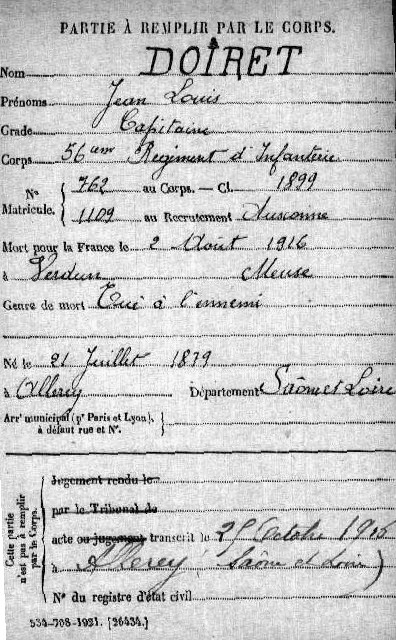 PARTIE À REMPLIR PAR LE CORPS.
Nom DOIRET
Prénoms Jean Louis
Grade Capitaine
Corps 56eme Régiment d'Infanterie
Nº Matricule. 762 au Corps. — Cl. 1899
1109 au Recrutement Auxonne
Mort pour la France le 2 Août 1916
à Verdun Meuse
Genre de mort Tué à l'ennemi
Né le 21 Juillet 1879
à Allerey Département Saône et Loire
Arrt municipal (pr Paris et Lyon),
à défaut rue et Nº.
Cette partie n'est pas à remplir par le Corps.
Jugement rendu le
par le Tribunal de
acte ou jugement transcrit le Octobre
à Allerey (Saône et Loire)
Nº du registre d'état civil
534-708-1921. [26434.]